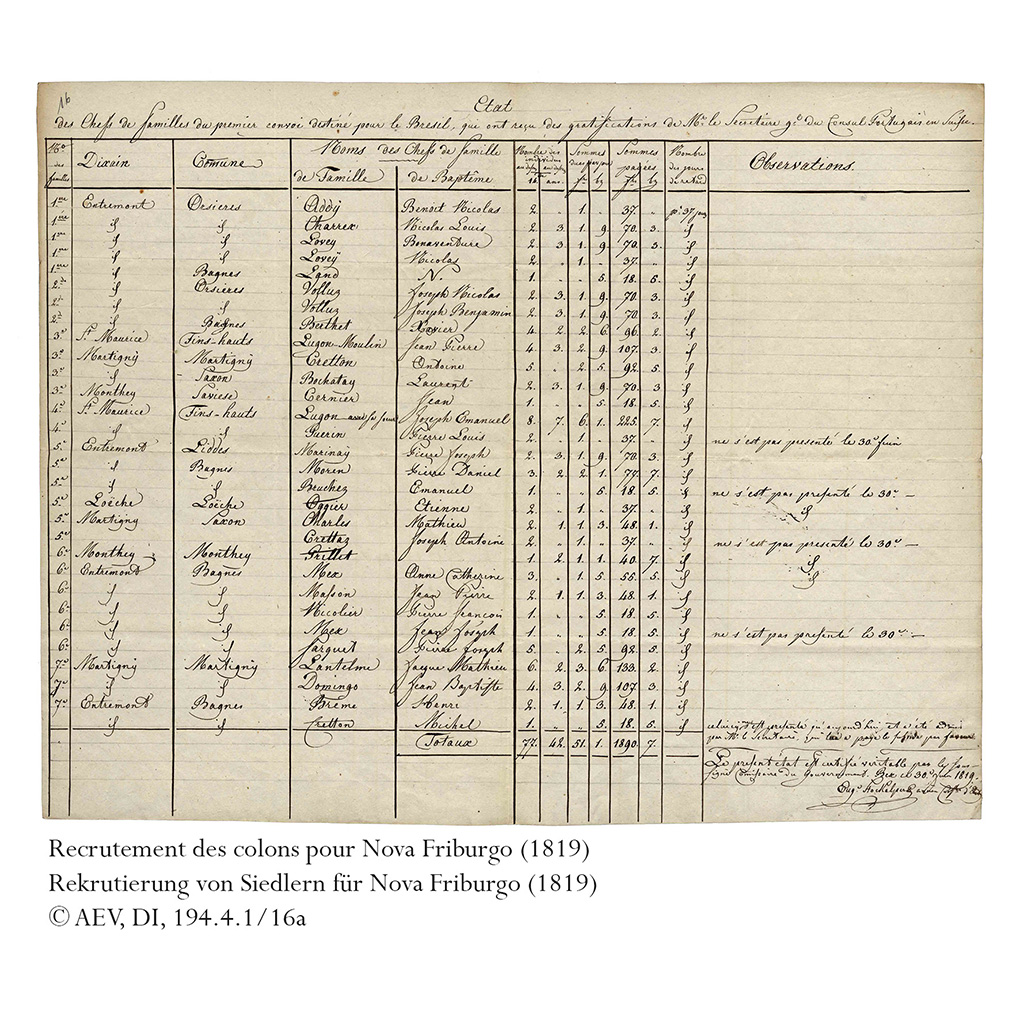 16
Etat
des Chefs de familles du premier convoi destiné pour le Bresil, qui ont reçu des gratifications de Mr. le Secretaire gl. du Consul Portugais en Suisse.
No. des familles Dixain Comune Noms des Chefs de famille Nombre des Sommes Sommes Nombre des jours Observations.
de Famille de Baptême payées
1me Entremont Orsieres Addÿ Benoit Nicolas 2. „ 1. „ 37. „ pr. 37 jours
1me id id Charrex Nicolas Louis 2. 3. 1. 9. 70. 3. id
1me id id Lovey Bonaventure 2. 3. 1. 9. 70. 3. id
1me id id Loveÿ Nicolas 2. „ 1. „ 37. „ id
1me id Bagnes Land N. 1. „ „ 5. 18. 5. id
2e id Orsieres Volluz Joseph Nicolas 2. 3. 1. 9. 70. 3. id
2e id id Volluz Joseph Benjamin 2. 3. 1. 9. 70. 3. id
2e id Bagnes Berthet Xavier 4. 2. 2. 6. 96. 2. id
3e St. Maurice Fins-hauts Lugon-Moulin Jean Pierre 4. 3. 2. 9. 107. 3. id
3e Martignÿ Martignÿ Cretton Antoine 5. „ 2. 5. 92. 5. id
3e id Saxon Bochatay Laurent 2. 3. 1. 9. 70. 3 id
3e Monthey Saviese Cernier Jean 1. „ „ 5. 18. 5. id
4e St. Maurice Fins-hauts Lugon Joseph Emanuel 8. 7. 6. 1. 225. 7. id
4e id id Guerin Pierre Louis 2. „ 1. „ 37. „ id ne s'est pas presenté le 30e juin
5e Entremont Liddes Marinay Pierre Joseph 2. 3. 1. 9. 70. 3. id
5e id Bagnes Moren Pierre Daniel 3. 2. 2. 1. 77. 7. id
5e id id Bruchez Emanuel 1. „ „ 5. 18. 5. id ne s'est pas presenté le 30e —
5e Loëche Loëche Oggier Etienne 2. „ 1. „ 37. „ id id
5e Martigny Saxon Charles Mathieu 2. 1. 1. 3. 48. 1. id
5e id id Crettaz Joseph Antoine 2. „ 1. „ 37. „ id ne s'est pas presenté le 30e —
6e Monthey Monthey Grillet 1. 2. 1. 1. 40. 7. id id
6e Entremont Bagnes Mex Anne Catherine 3. „ 1. 5. 55. 5. id id
6e id id Masson Jean Pierre 2. 1. 1. 3. 48. 1. id
6e id id Nicolier Pierre François 1. „ „ 5. 18. 5. id
6e id id Mex Jean Joseph 1. „ „ 5. 18. 5. id ne s'est pas presenté le 30e —
6e id id Jarquet Pierre Joseph 5. „ 2. 5. 92. 5. id
7e Martigny Martigny Lantelme Jacque Mathieu 6. 2. 3. 6. 133. 2. id
7e id id Domingo Jean Baptiste 4. 3. 2. 9. 107. 3. id
7e Entremont Bagnes Brême Henri 2. 1. 1. 3. 48. 1. id
id id Cretton Michel 1. „ „ 5. 18. 5. id
Totaux 77. 42. 51. 1. 1890. 7.
Le present état est certifié veritable par le sous-
signé Comissaire du Gouvernement. Bex ce 30e Juin 1819.
Recrutement des colons pour Nova Friburgo (1819)
Rekrutierung von Siedlern für Nova Friburgo (1819)
© AEV, DI, 194.4.1/16a